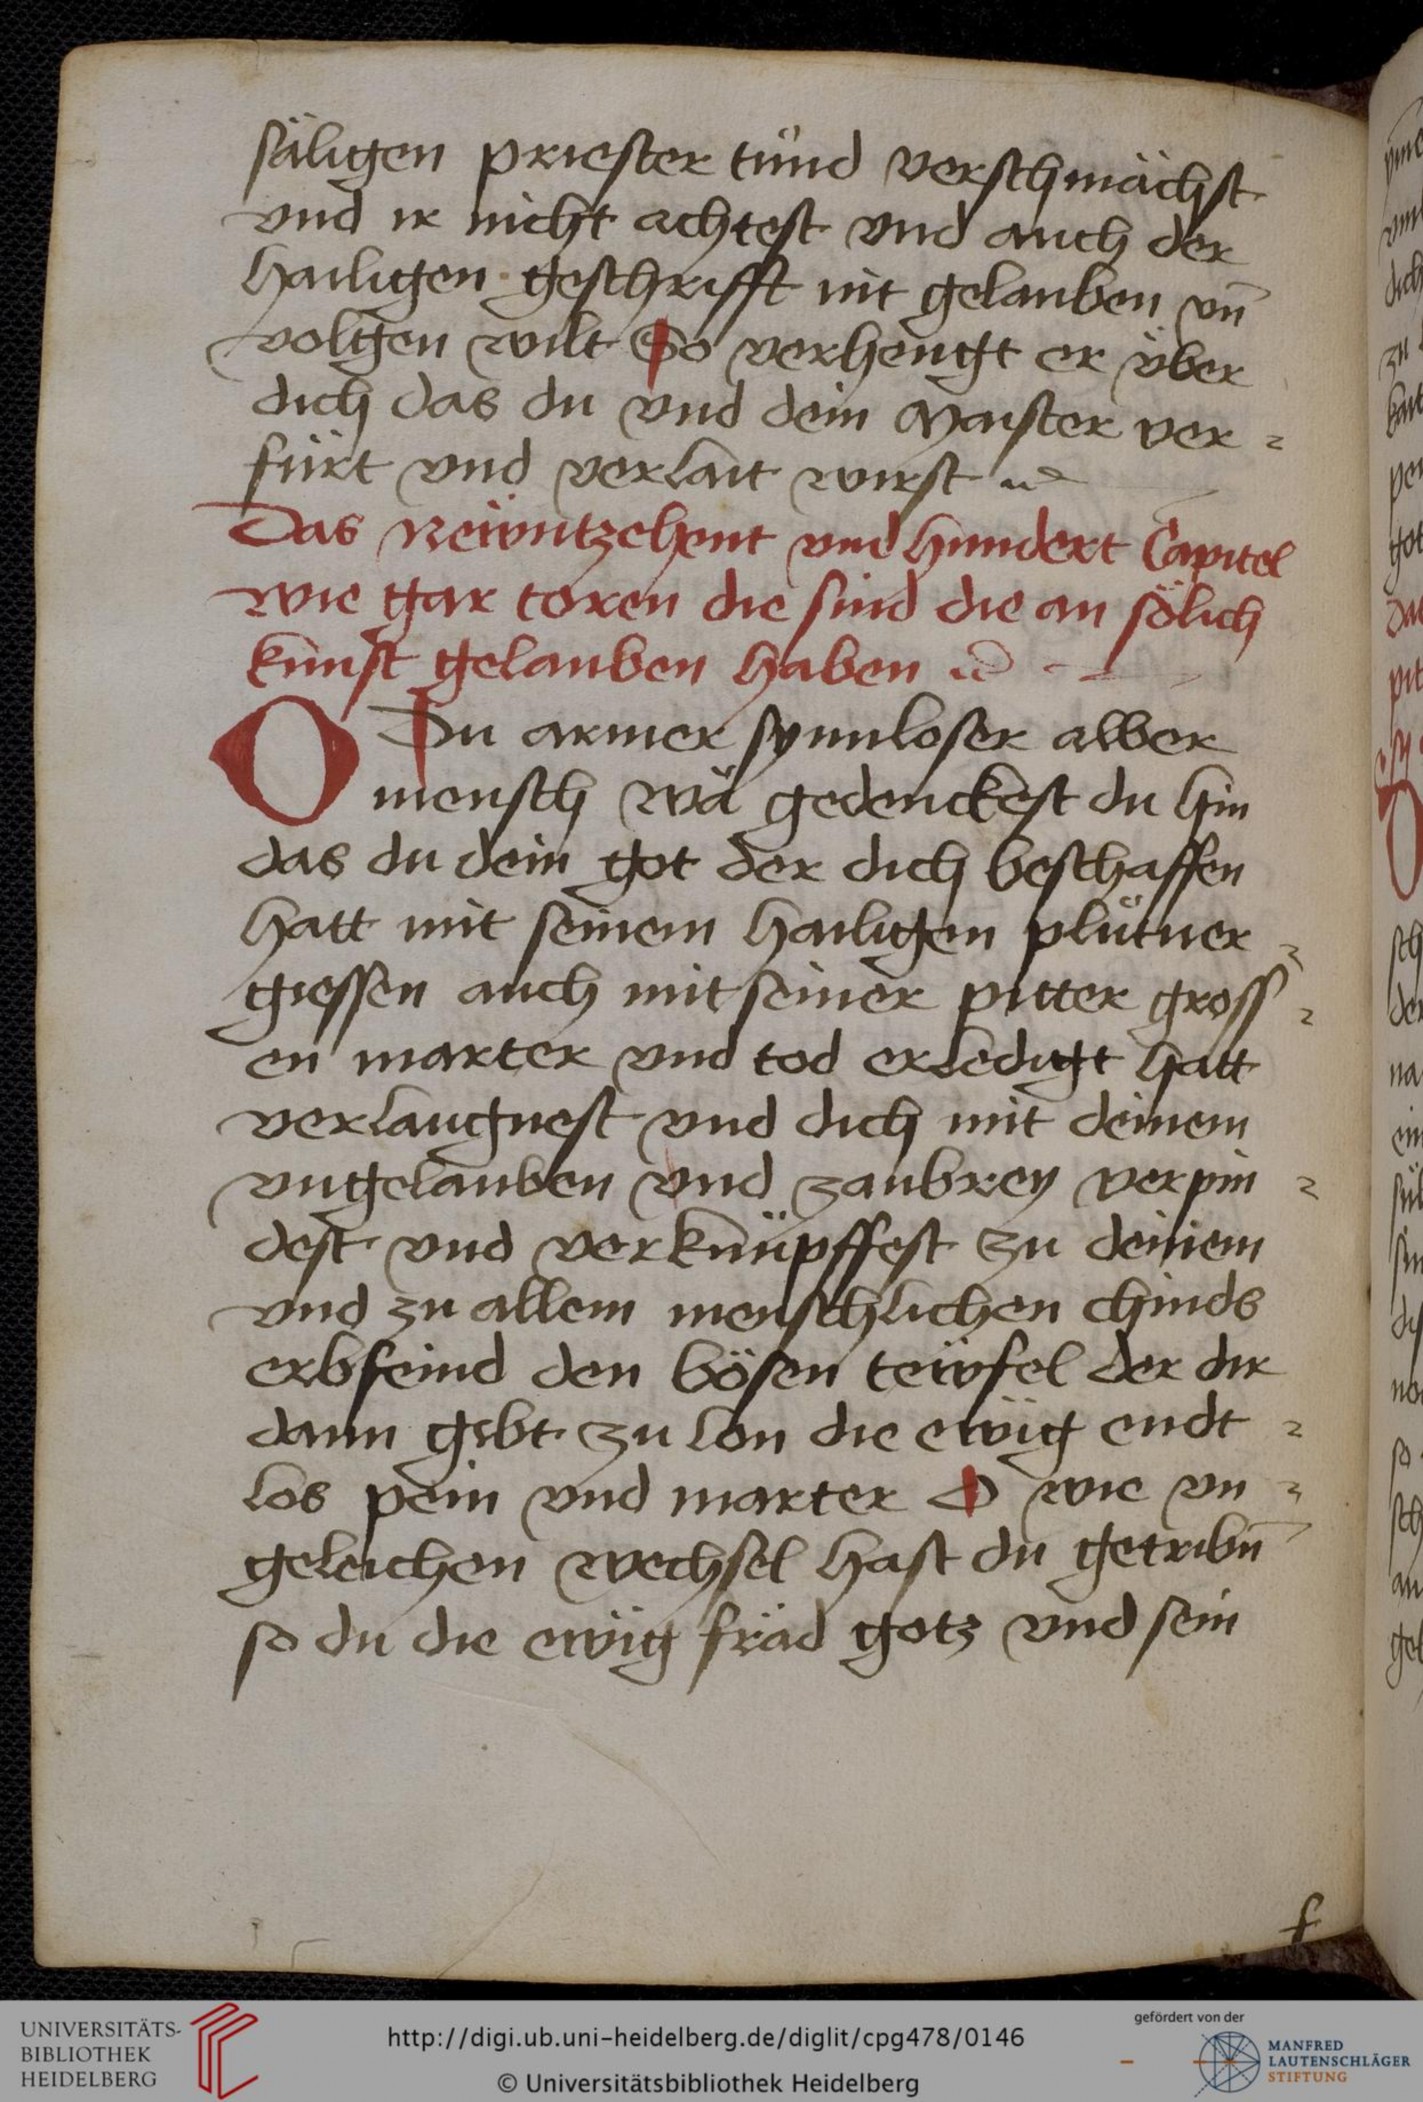 säligen priester tuͦnd verschmächst
vnd ir nicht achtest vnd auch der
hailigen geschrifft nit gelauben vn̄
volgen wilt So verhengt er über
dich das du vnd dein Maister ver=
fürt vnd verlait wirst
Das Newntzehent vnd hundert Capitel
wie gar toren die sind die an sölich
kunst gelauben haben
O Du armer synnloser alber
mensch wa gedenckest du hin
das du dein got der dich beschaffen
hatt mit seinem hailigen pluͦtuer=
giessen auch mit seiner pitter gross=
en marter vnd tod erledigt hatt
verlaugnest vnd dich mit deinem
vngelauben vnd zaubrey verpin=
dest vnd verknüpffest zu deinem
vnd zu allem menschlichen chinds
erbfeind den bösen tewfel der dir
dann gibt zu lon die ewig endt=
los pein vnd marter O wie vn=
geleichen wechsel hast du getribn̄
so du die ewig fräd gotz vnd sein
f
UNIVERSITÄTS-
BIBLIOTHEK
HEIDELBERG
http://digi.ub.uni-heidelberg.de/diglit/cpg478/0146
© Universitätsbibliothek Heidelberg
gefördert von der
MANFRED
LAUTENSCHLÄGER
STIFTUNG